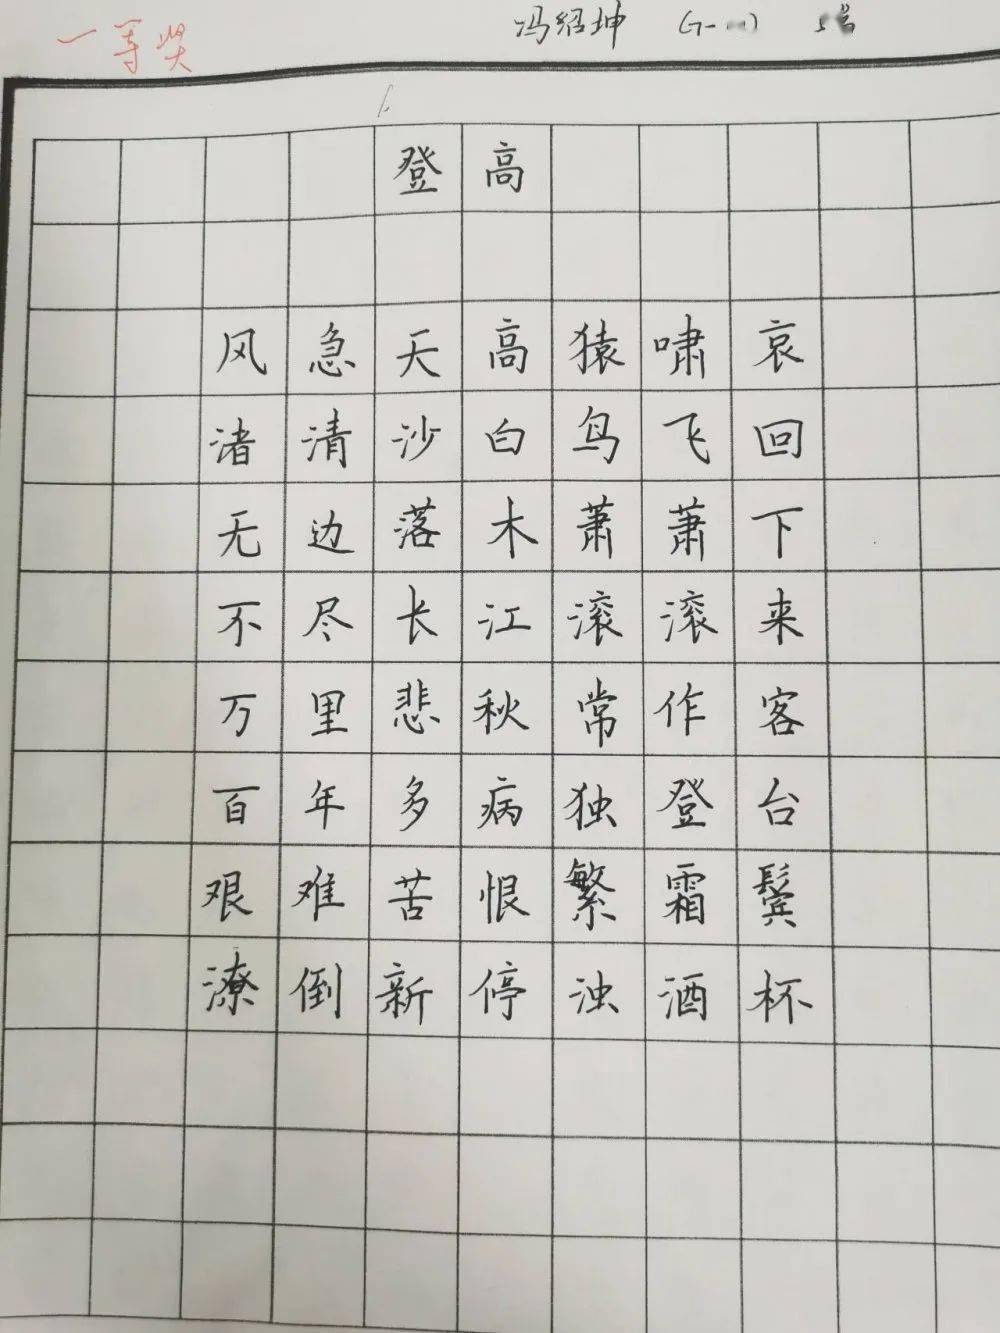 一等奖 冯绍坤
登高
风急天高猿啸哀
渚清沙白鸟飞回
无边落木萧萧下
不尽长江滚滚来
万里悲秋常作客
百年多病独登台
艰难苦恨繁霜鬓
潦倒新停浊酒杯